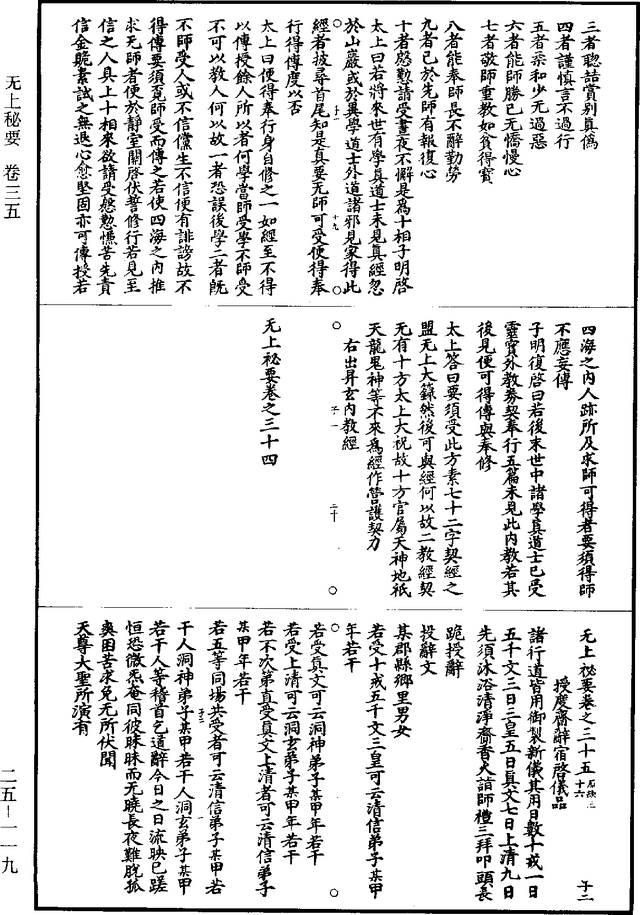 三者聰喆賞別真僞
四者謹慎言不過行
五者柔和少无過惡
六者能師勝己无憍慢心
七者敬師重教如貧得寶
八者能奉師長不辭勤勞
九者已於先師有報復心
十者慇懃請受晝夜不懈是爲十相子明啓
太上曰若將來世有學真道士未見真經忽
於山巖或於異學道士外道諸邪見家得此
經者披尋首尾知是真要无師可受便得奉
行得傳度以否
太上曰便得奉行身自修之一如經至不得
以傳授餘人所以者何學當師受學不師受
不可以教人何以故一者恐誤後學二者旣
不師受人或不信儻生不信便有誹謗故不
得傳要須覓師受而傳之若使四海之內推
求无師者便於靜室關啓伏誓修行若見至
信之人具上十相來欲請受慇懃憔苦先責
信金跪素試之無退心愈堅固亦可傳授若
四海之內人跡所及求師可得者要須得師
不應妄傳
子明復啓曰若後末世中諸學真道士已受
靈寶外教券契奉行五篇未見此內教若其
後見便可得傳與奉修
太上答曰要須受此方素七十二字契經之
盟无上大籙然後可與經何以故二教經契
无有十方太上大祝故十方官屬天神地祇
天龍鬼神等不來爲經作營護契力
右出昇玄內教經
无上祕要卷之三十四
无上祕要卷之三十五
授度齋辭宿啓儀品
諸行道皆用御製新儀其用日數十戒一日
五千文三日三皇五日真文七日上清九日
先須沐浴清淨齋香火詣師禮三拜叩頭長
跪授辭
投辭文
某郡縣鄉里男女
若受十戒五千文三皇可云清信弟子某甲
年若干
若受真文可云洞神弟子某甲年若干
若受上清可云洞玄弟子某甲年若干
若不次第直受真文上清者可云清信弟子
某甲年若干
若五等同場共受者可云清信弟子某甲若
干人洞神弟子某甲若干人洞玄弟子某甲
若干人等稽首乞道辭今日之日流映已蹉
恒恐微炁奄同彼昧昧而无曉長夜難脫孤
爽困苦求免无所伏聞
天尊大聖所演有
无上秘要 卷三五
二五—一一九